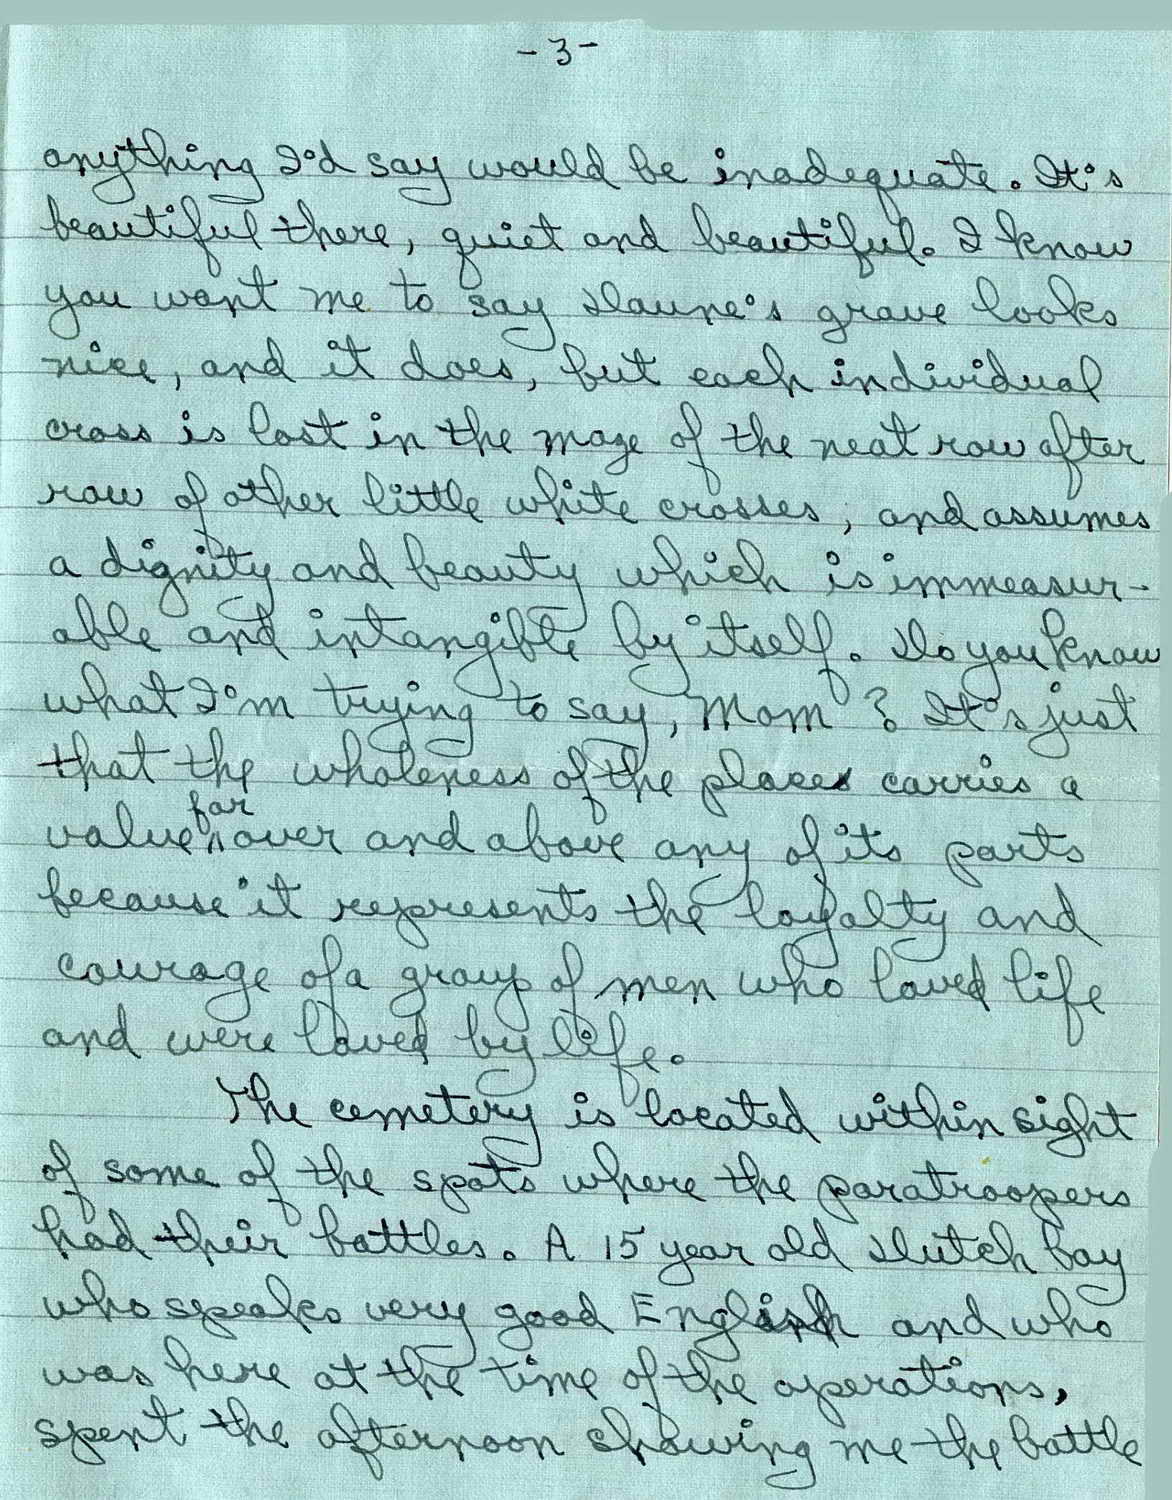 - 3 -
anything I'd say would be inadequate. It's
beautiful there, quiet and beautiful. I know
you want me to say Daune's grave looks
nice, and it does, but each individual
cross is lost in the maze of the neat row after
row of other little white crosses, and assumes
a dignity and beauty which is immeasur-
able and intangible by itself. Do you know
what I'm trying to say, Mom? It's just
that the wholeness of the place carries a
value far over and above any of its parts
because it represents the loyalty and
courage of a group of men who loved life
and were loved by life.
The cemetery is located within sight
of some of the spots where the paratroopers
had their battles. A 15 year old Dutch boy
who speaks very good English and who
was here at the time of the operations,
spent the afternoon showing me the battle